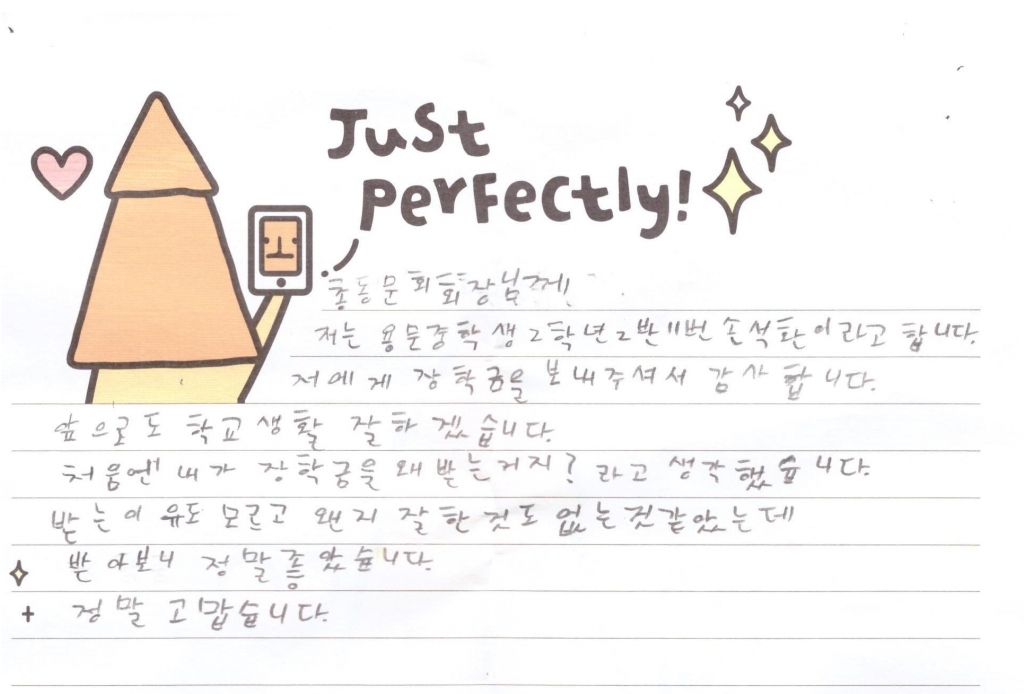 Just
perfectly!
총동문회 회장님께
저는 용문중학생 2학년 2반 11번 손석환이라고 합니다.
저에게 장학금을 보내주셔서 감사합니다.
앞으로도 학교생활 잘하겠습니다.
처음엔 내가 장학금을 왜 받는거지? 라고 생각했습니다.
받는이유도 모르고 왠지 잘한것도 없는것같았는데
받아보니 정말좋았습니다.
정말 고맙습니다.